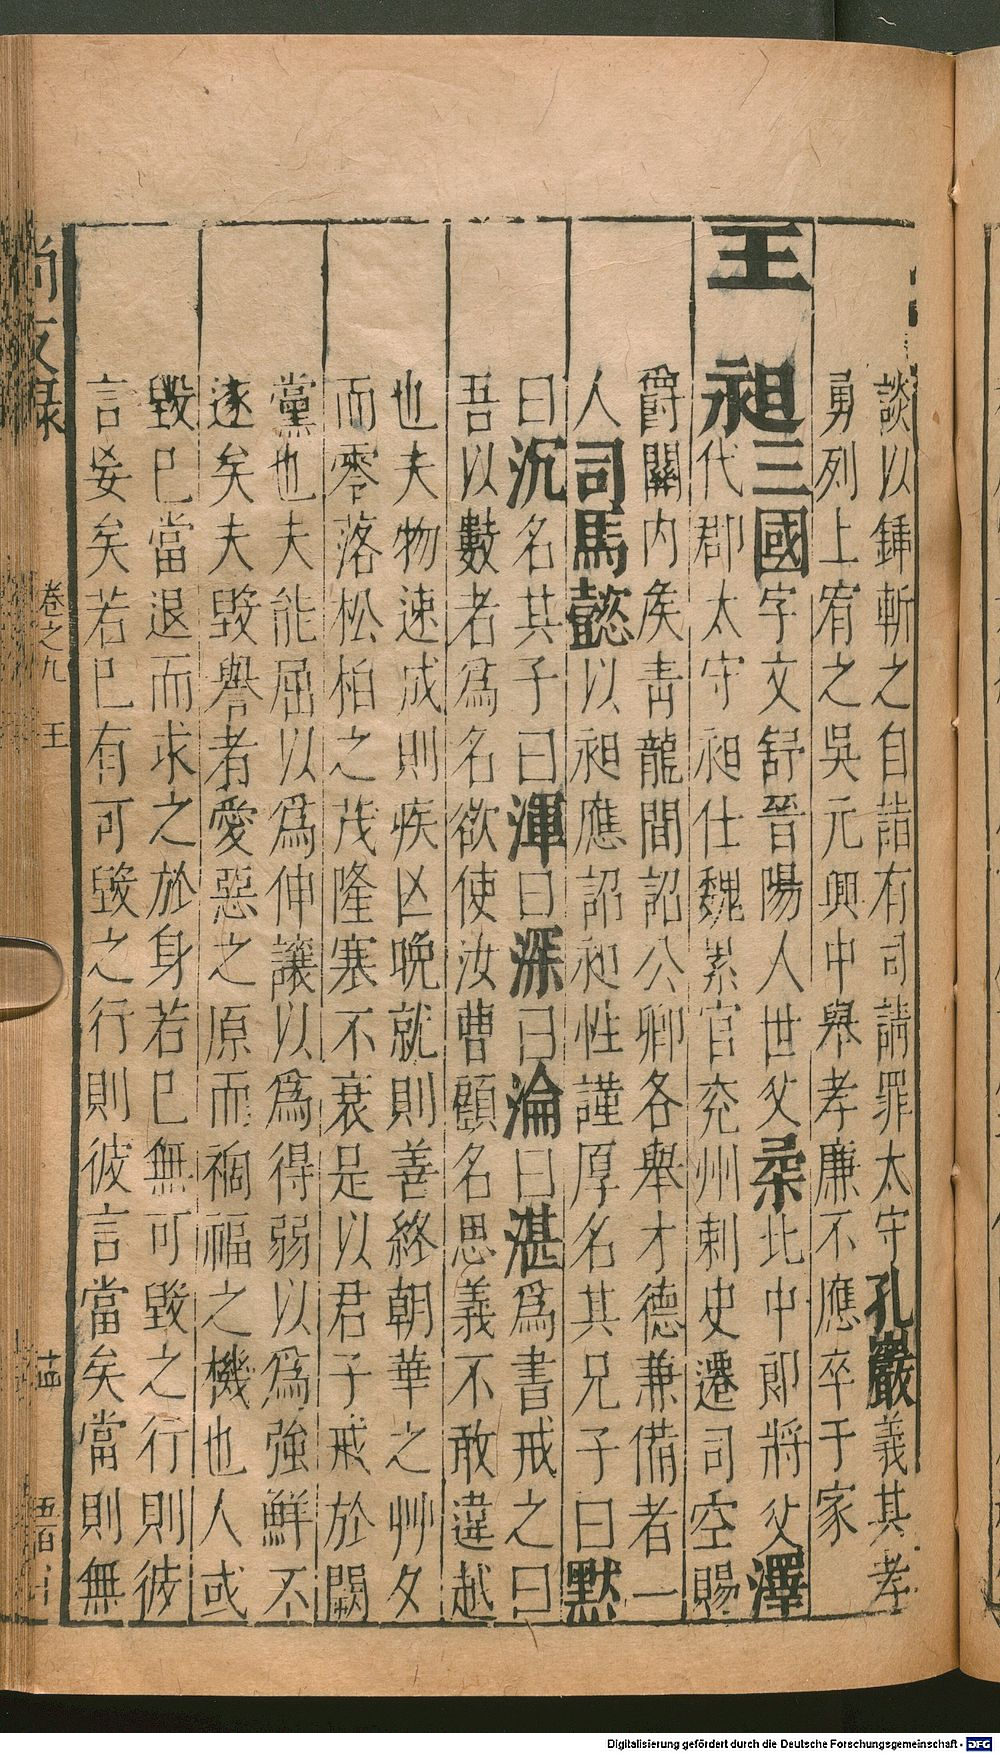 談以錘斬之自詰有司請罪太守孔巖義其孝
勇列上宥之吳元興中舉孝廉不應卒于家
王昶三國字文舒晉陽人世父柔北中郎將父澤
代郡太守昶仕魏累官兖州刺史遷司空賜
爵關內矦青龍間詔公卿各舉才德兼備者一
人司馬懿以昶應詔昶性謹厚名其兄子曰默
曰沉名其子曰渾曰深曰淪曰湛爲書戒之曰
吾以數者爲名欲使汝曹顧名思義不敢違越
也夫物速成則疾凶晚就則善終朝華之艸夕
而零落松柏之茂隆寒不衰是以君子戒於闕
黨也夫能屈以爲伸讓以爲得弱以爲強鮮不
遂矣夫毀譽者愛惡之原而禍福之機也人或
毀已當退而求之於身若已無可毀之行則彼
言妄矣若已有可毀之行則彼言當矣當則無
尚友錄
卷之九
王
十四
Digitalisierung gefördert durch die Deutsche Forschungsgemeinschaft - DFG